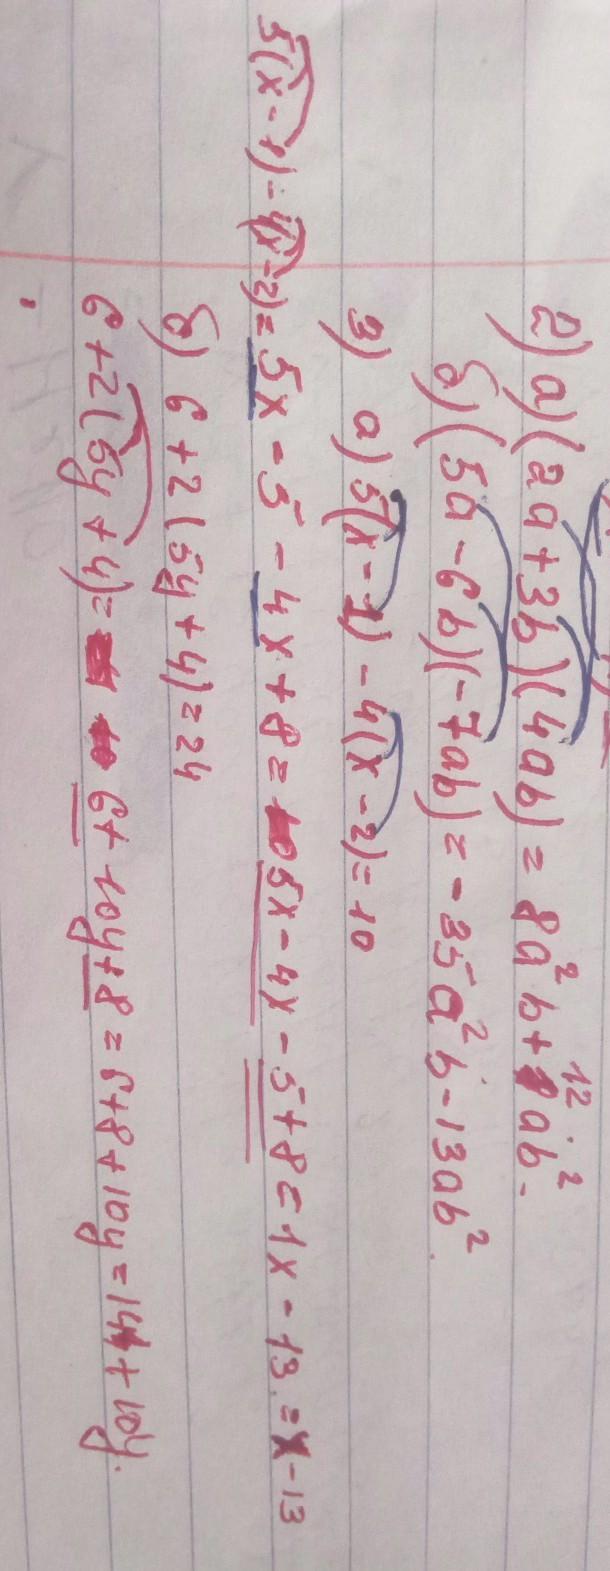 2) а) (2a+3b)(4ab) = 8a²b+12ab².
б) (5a-6b)(-7ab) = -35a²b-13ab².
3) а) 5(x-1)-4(x-2)=10
5(x-1)-4(x-2)=5x-5-4x+8=5x-4x-5+8=1x-13=x-13
б) 6+2(5y+4)=24
6+2(5y+4)=6+10y+8=6+8+10y=14+10y.